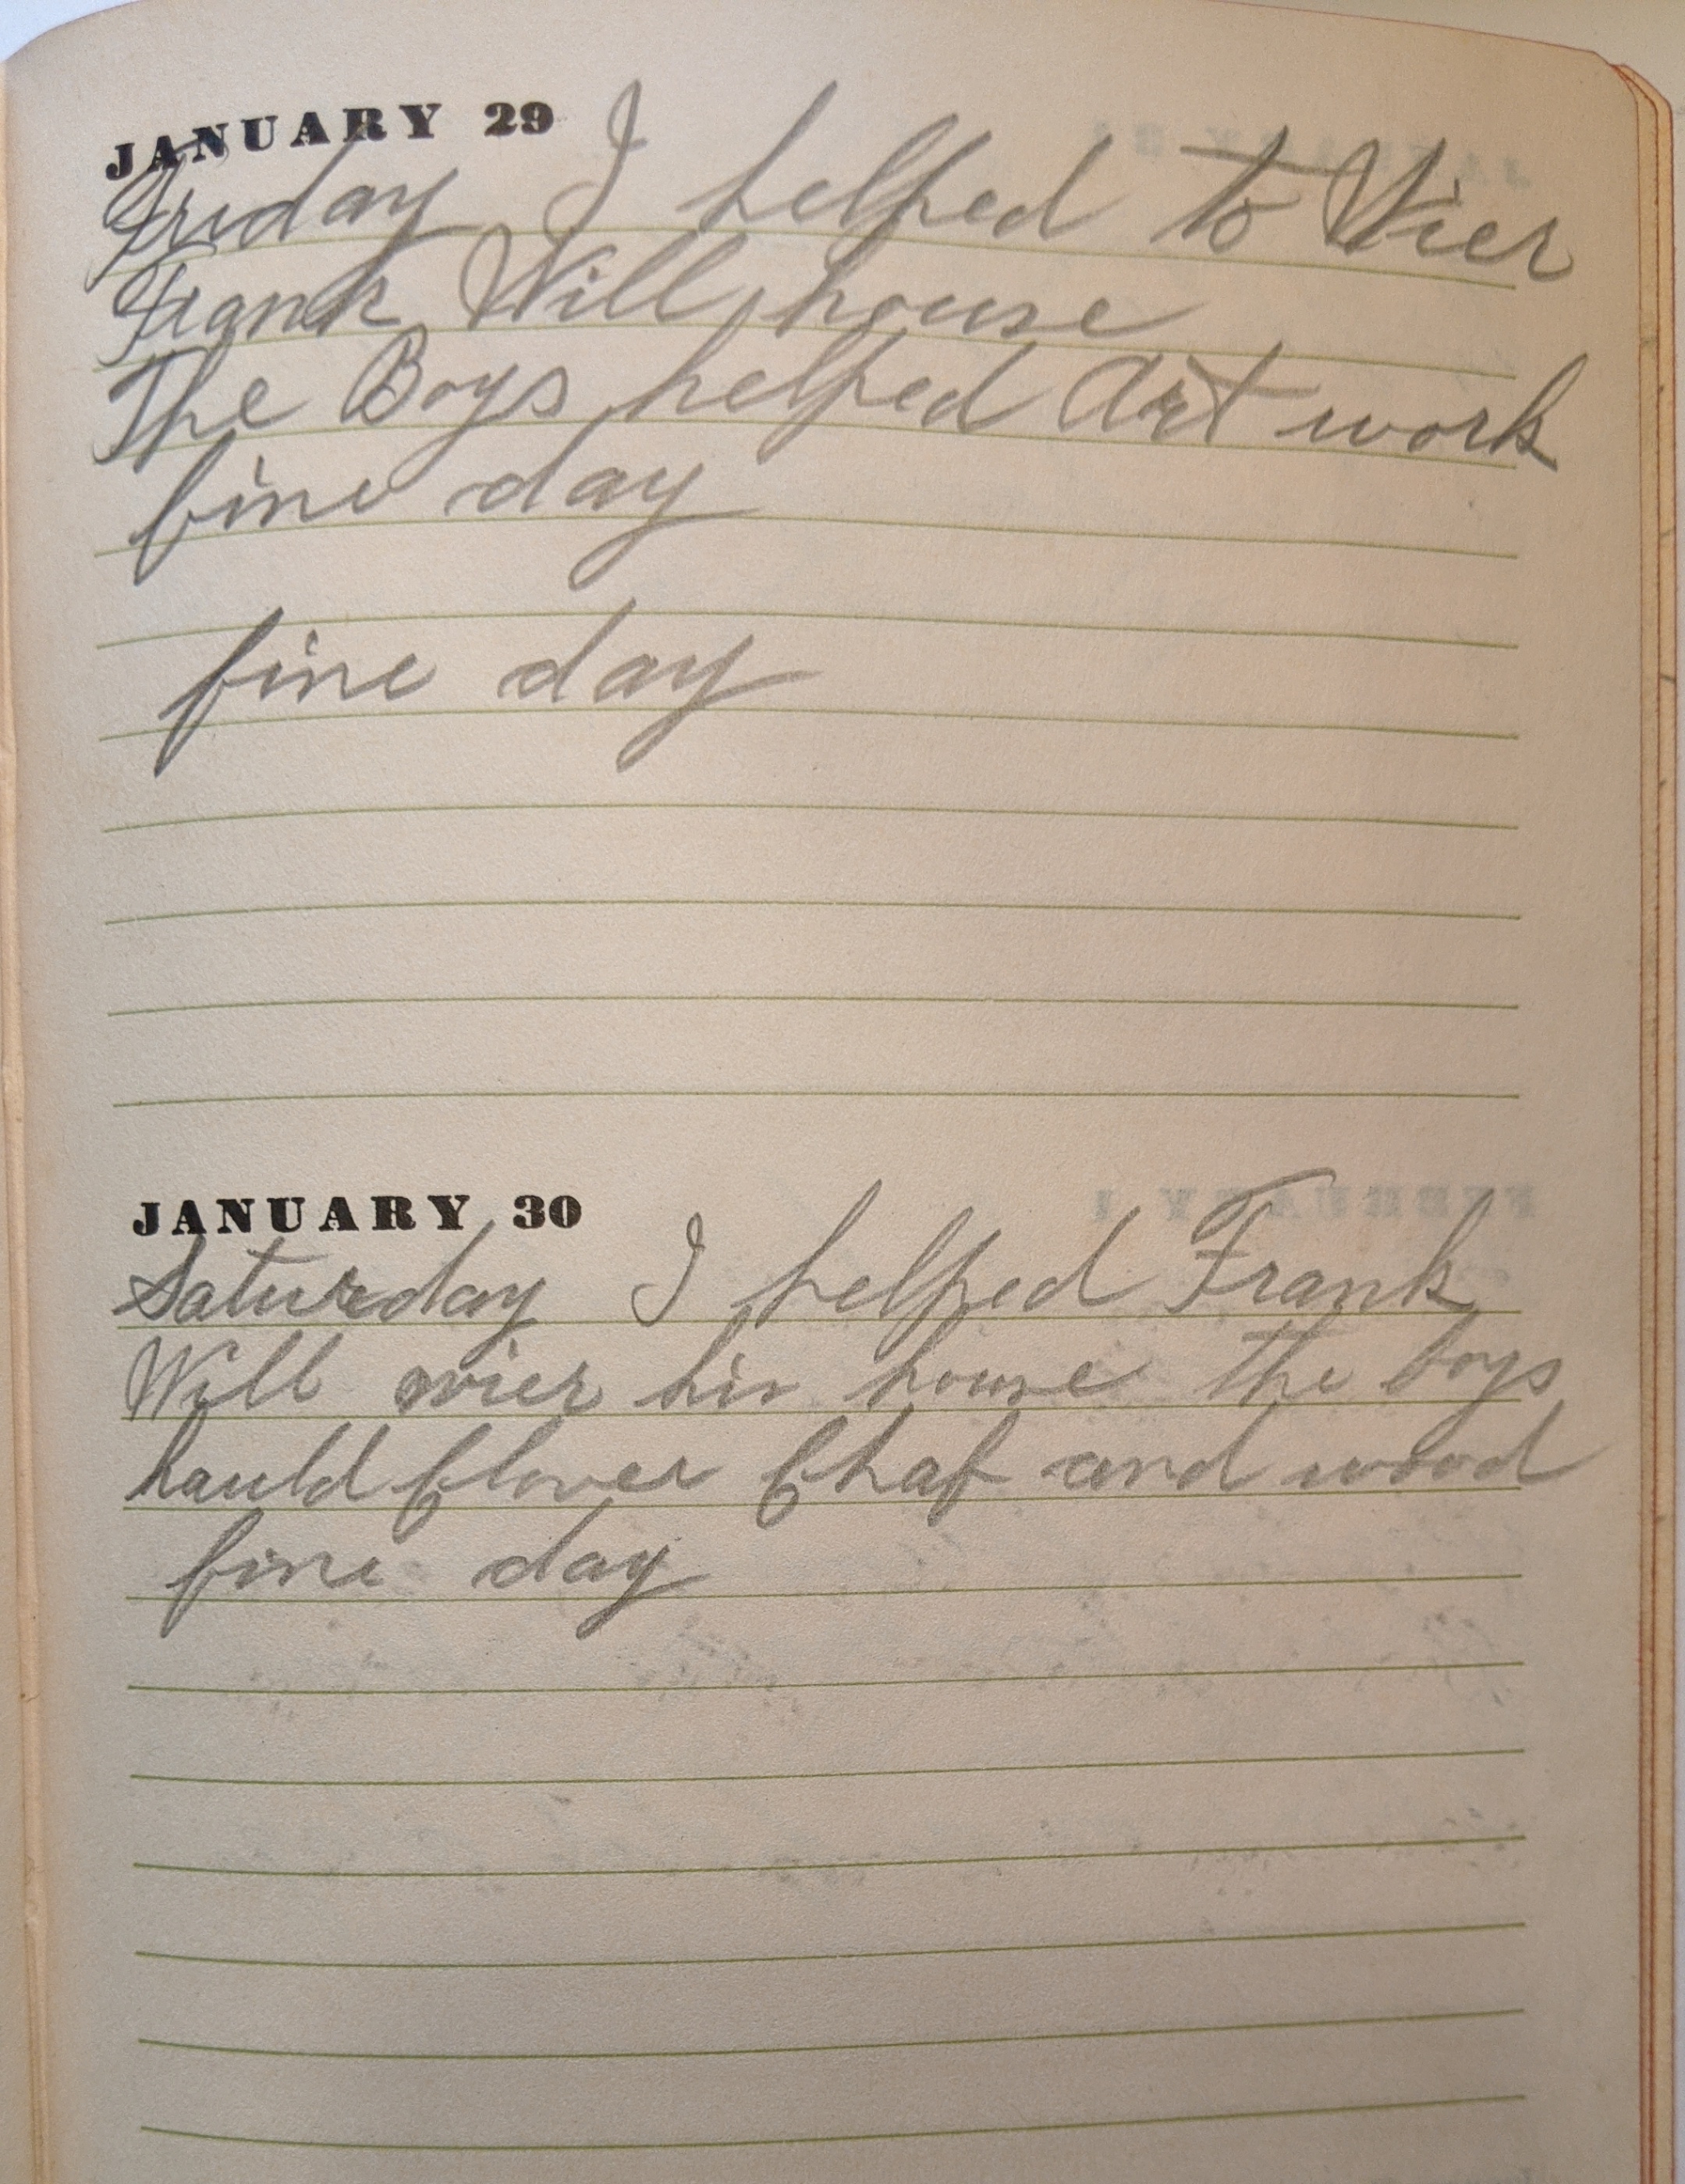 JANUARY 29
Friday I helped to Wier
Frank Will house
The Boys helped Art work
fine day
fine day
JANUARY 30
Saturday I helped Frank
Will wier his house the boys
hauld Clover Chaf and wood
fine day